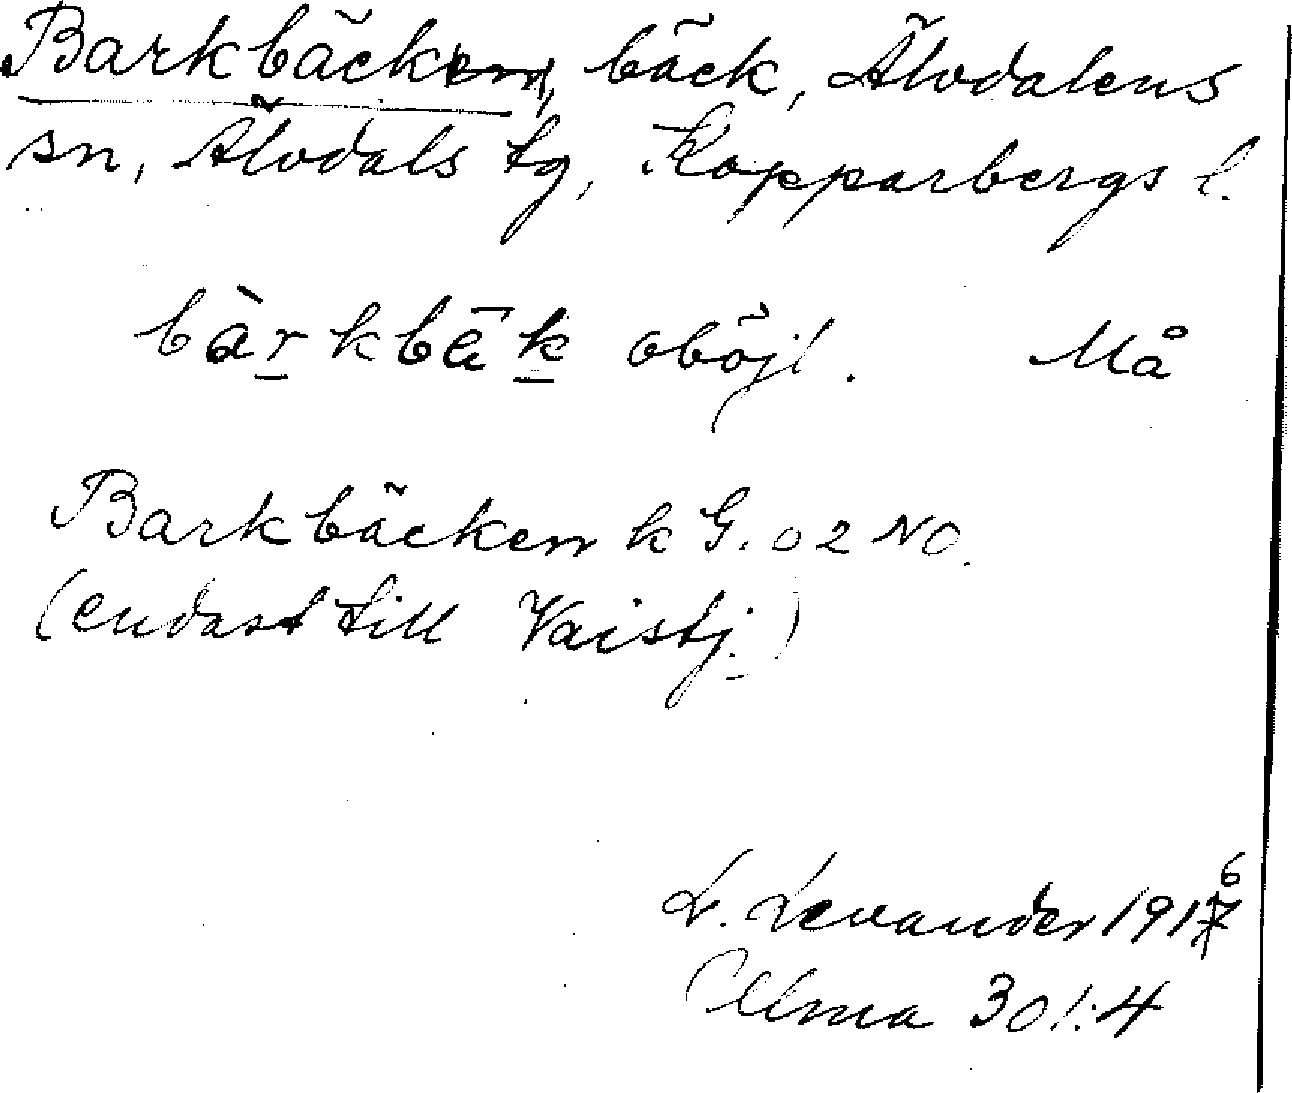 Barkbäcken, bäck, Älvdalens
sn, Älvdals tg, Kopparbergs l.
bàrkbǟk oböjl. Må
Barkbäcken k G. 02 NO.
(endast till Vaistj.)
L. Levander 1916
Ulma 301:4